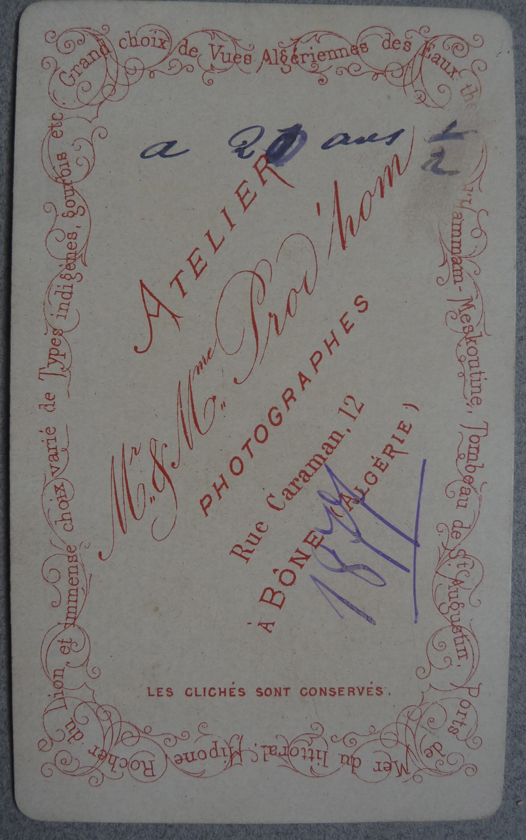 Grand choix de Vues Algériennes des Eaux
d'Hammam-Meskoutine, Tombeau de St Augustin, Ports de
Mer du littoral, Hipone, Rocher du Lion, et immense choix varié de Types indigènes, gourbis etc.
a 21 ans 1/2
ATELIER
Mr. & Mme. Prod'hom
PHOTOGRAPHES
Rue Caraman, 12
à BÔNE (ALGÉRIE)
LES CLICHÉS SONT CONSERVÉS.